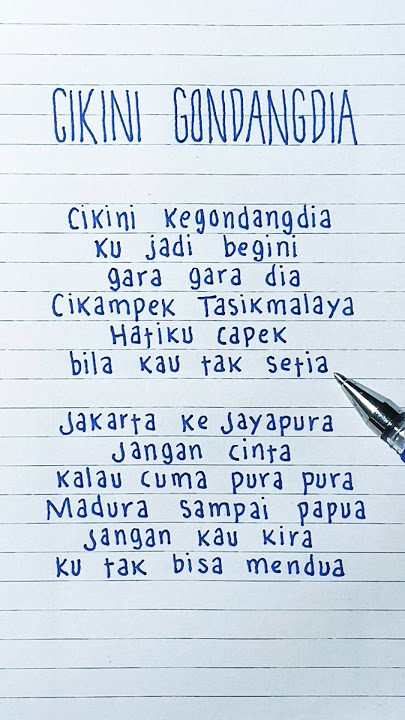 CIKINI GONDANGDIA
Cikini Kegondangdia
Ku jadi begini
gara gara dia
Cikampek Tasikmalaya
Hatiku capek
bila kau tak setia
Jakarta ke Jayapura
Jangan cinta
Kalau cuma pura pura
Madura sampai papua
Jangan kau kira
Ku tak bisa mendua